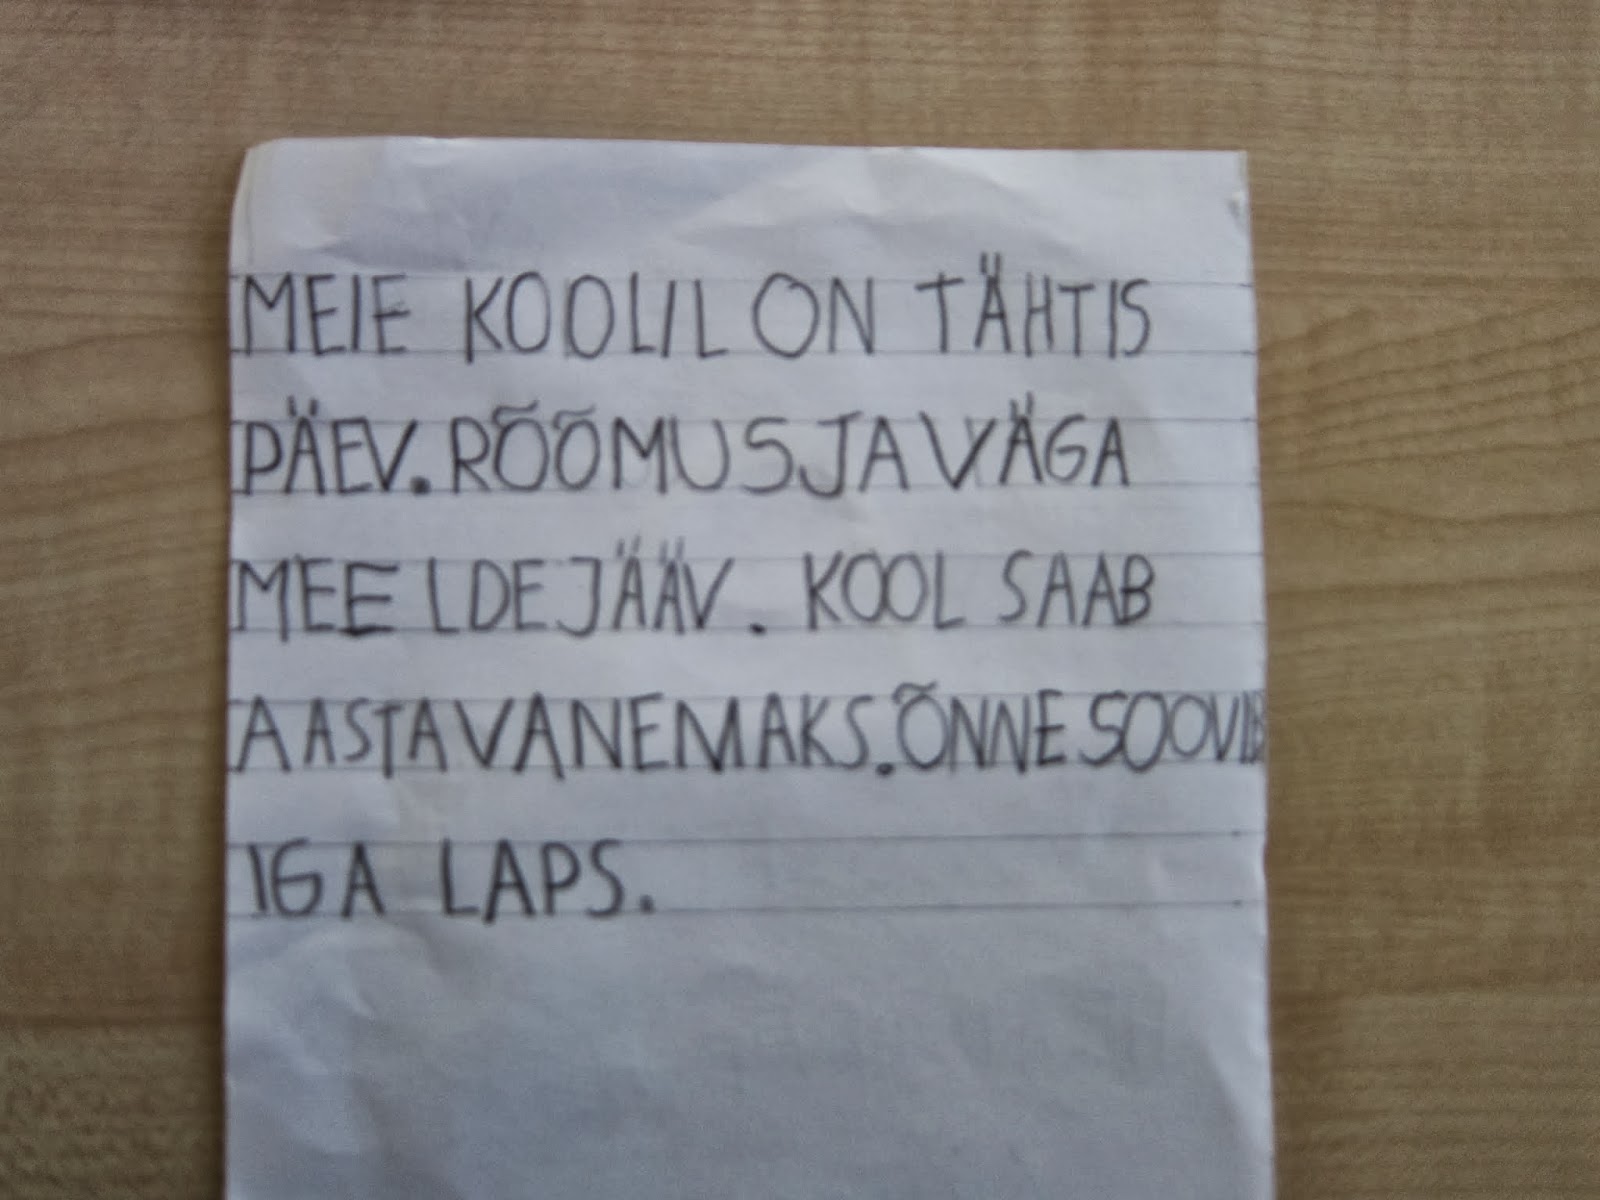 MEIE KOOLIL ON TÄHTIS
PÄEV. RÕÕMUS JA VÄGA
MEELDEJÄÄV. KOOL SAAB
AASTA VANEMAKS. ÕNNE SOOVIB
IGA LAPS.